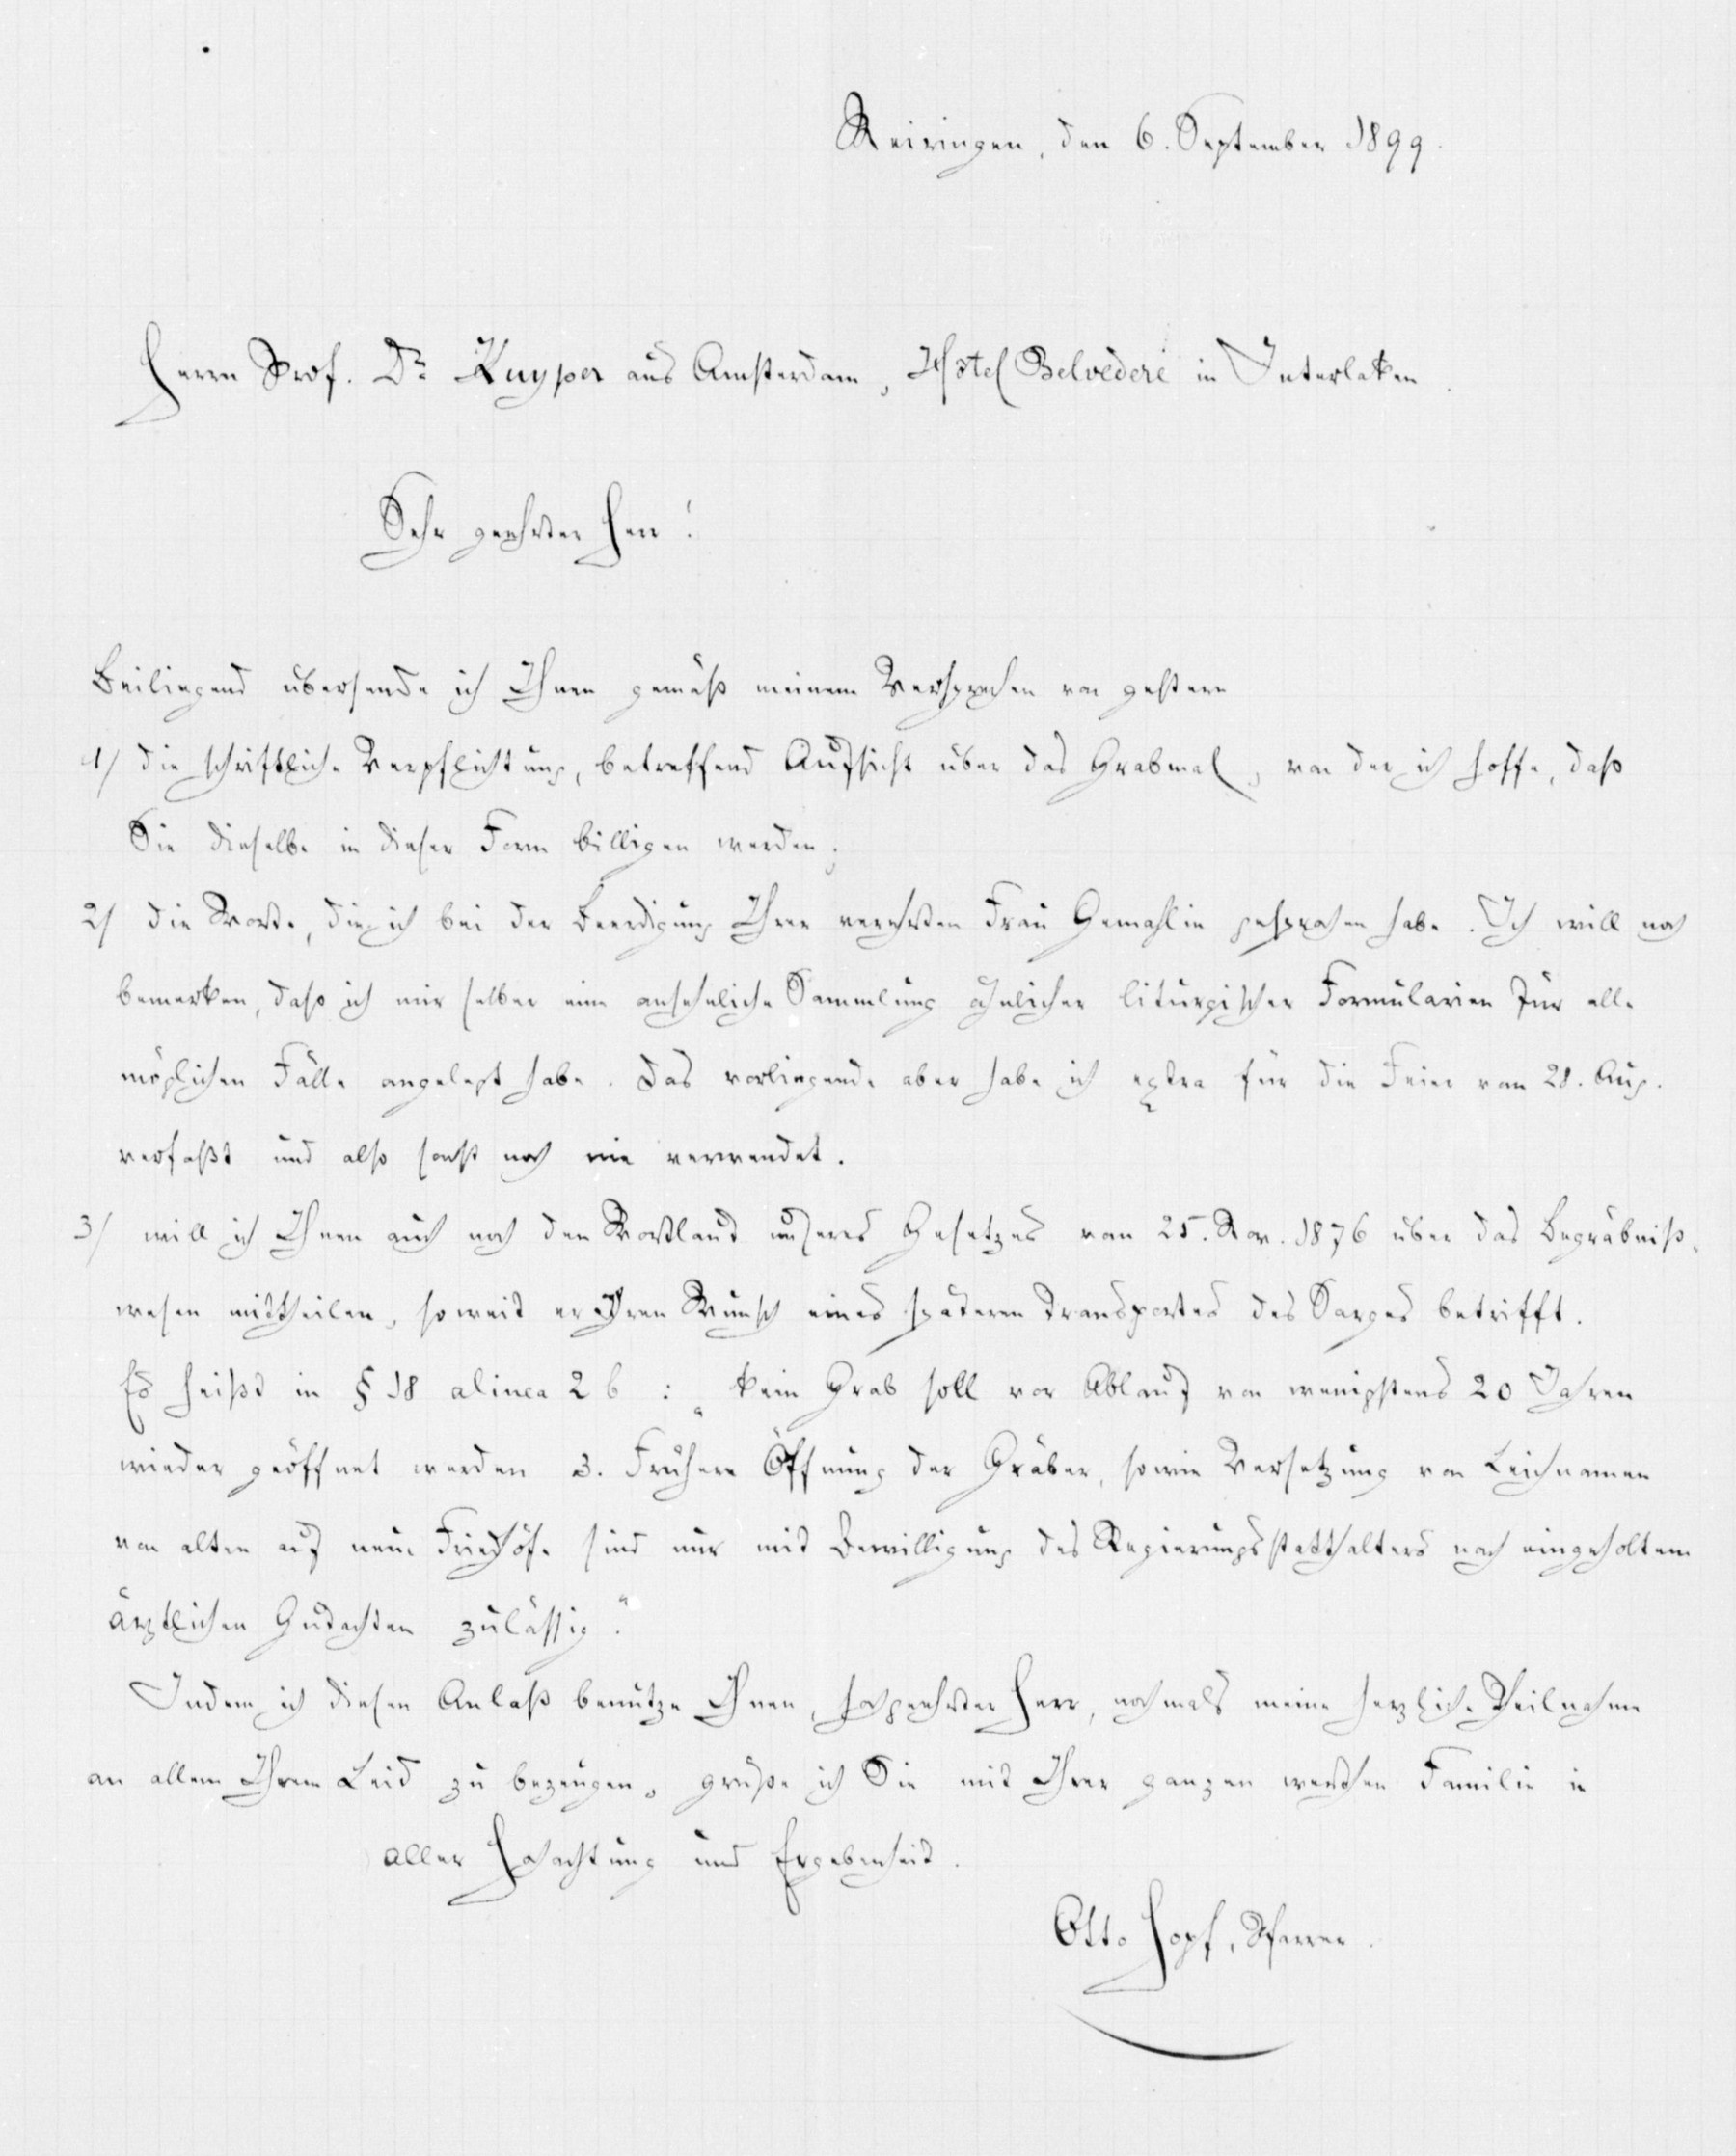 Meiringen, den 6. September 1899.
Herrn Prof. Dr Kuyper aus Amsterdam, Hôtel Belvédère in Interlaken.
Sehr geehrter Herr!
Beiliegend übersende ich Ihnen gemäß meinem Versprechen von gestern
1/ die schriftliche Verpflichtung, betreffend Aufsicht über das Grabmal, von der ich hoffe, daß
Sie dieselbe in dieser Form billigen werden;
2/ die Worte, die ich bei der Beerdigung Ihrer verehrten Frau Gemahlin gesprochen habe. Ich will noch
bemerken, daß ich mir selber eine ansehnliche Sammlung ähnlicher liturgischer Formularien für alle
möglichen Fälle angelegt habe. Das vorliegende aber habe ich extra für die Feier vom 28. Aug.
verfaßt und also sonst noch nie verwendet.
3/ will ich Ihnen auch noch den Wortlaut unseres Gesetzes vom 25. Nov. 1876 über das Begräbniß-
wesen mittheilen, soweit er Ihren Wunsch eines späteren Transportes des Sarges betrifft.
Es heißt in § 18 alinea 2 b : „kein Grab soll vor Ablauf von wenigstens 20 Jahren
wieder geöffnet werden 3. Frühere Öffnung der Gräber, sowie Versetzung von Leichnamen
von alten auf neue Friedhöfe sind nur mit Bewilligung des Regierungsstatthalters nach eingeholtem
ärztlichen Gutachten zulässig."
Indem ich diesen Anlaß benutze Ihnen, hochgeehrter Herr, nochmals meine herzliche Theilnahme
an allem Ihrem Leid zu bezeugen, grüße ich Sie mit Ihrer ganzen werthen Familie in
aller Hochachtung und Ergebenheit.
Otto Hopf, Pfarrer.